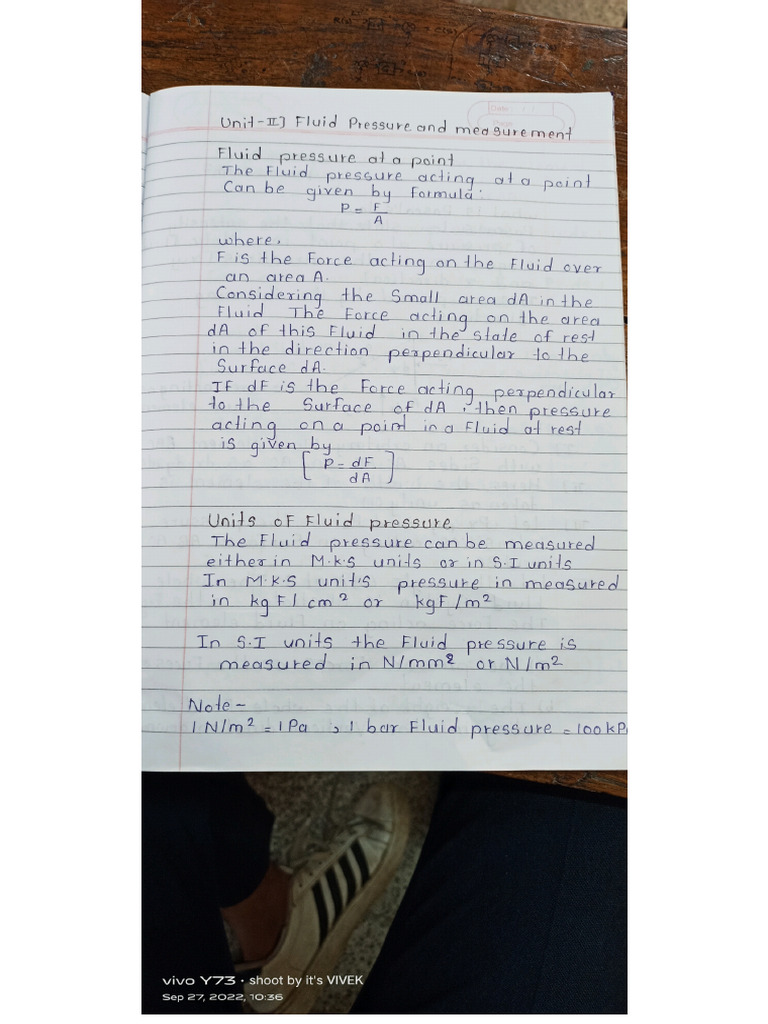 Date
Page
Unit-II] Fluid Pressure and measurement
Fluid pressure at a point
The Fluid pressure acting at a point
Can be given by Formula:
P = F/A
where,
F is the Force acting on the Fluid over
an area A.
Considering the Small area dA in the
Fluid The Force acting on the area
dA of this Fluid in the state of rest
in the direction perpendicular to the
Surface dA.
If dF is the Force acting perpendicular
to the Surface of dA, then pressure
acting on a point in a Fluid at rest
is given by
[P = dF/dA]
Units of Fluid pressure
The Fluid pressure can be measured
either in M.k.s units or in S.I units
In M.k.s units pressure in measured
in kgF/cm² or kgF/m²
In S.I units the Fluid pressure is
measured in N/mm² or N/m²
Note-
1 N/m² = 1 Pa , 1 bar Fluid pressure = 100 kP
vivo Y73 · shoot by it's VIVEK
Sep 27, 2022, 10:36